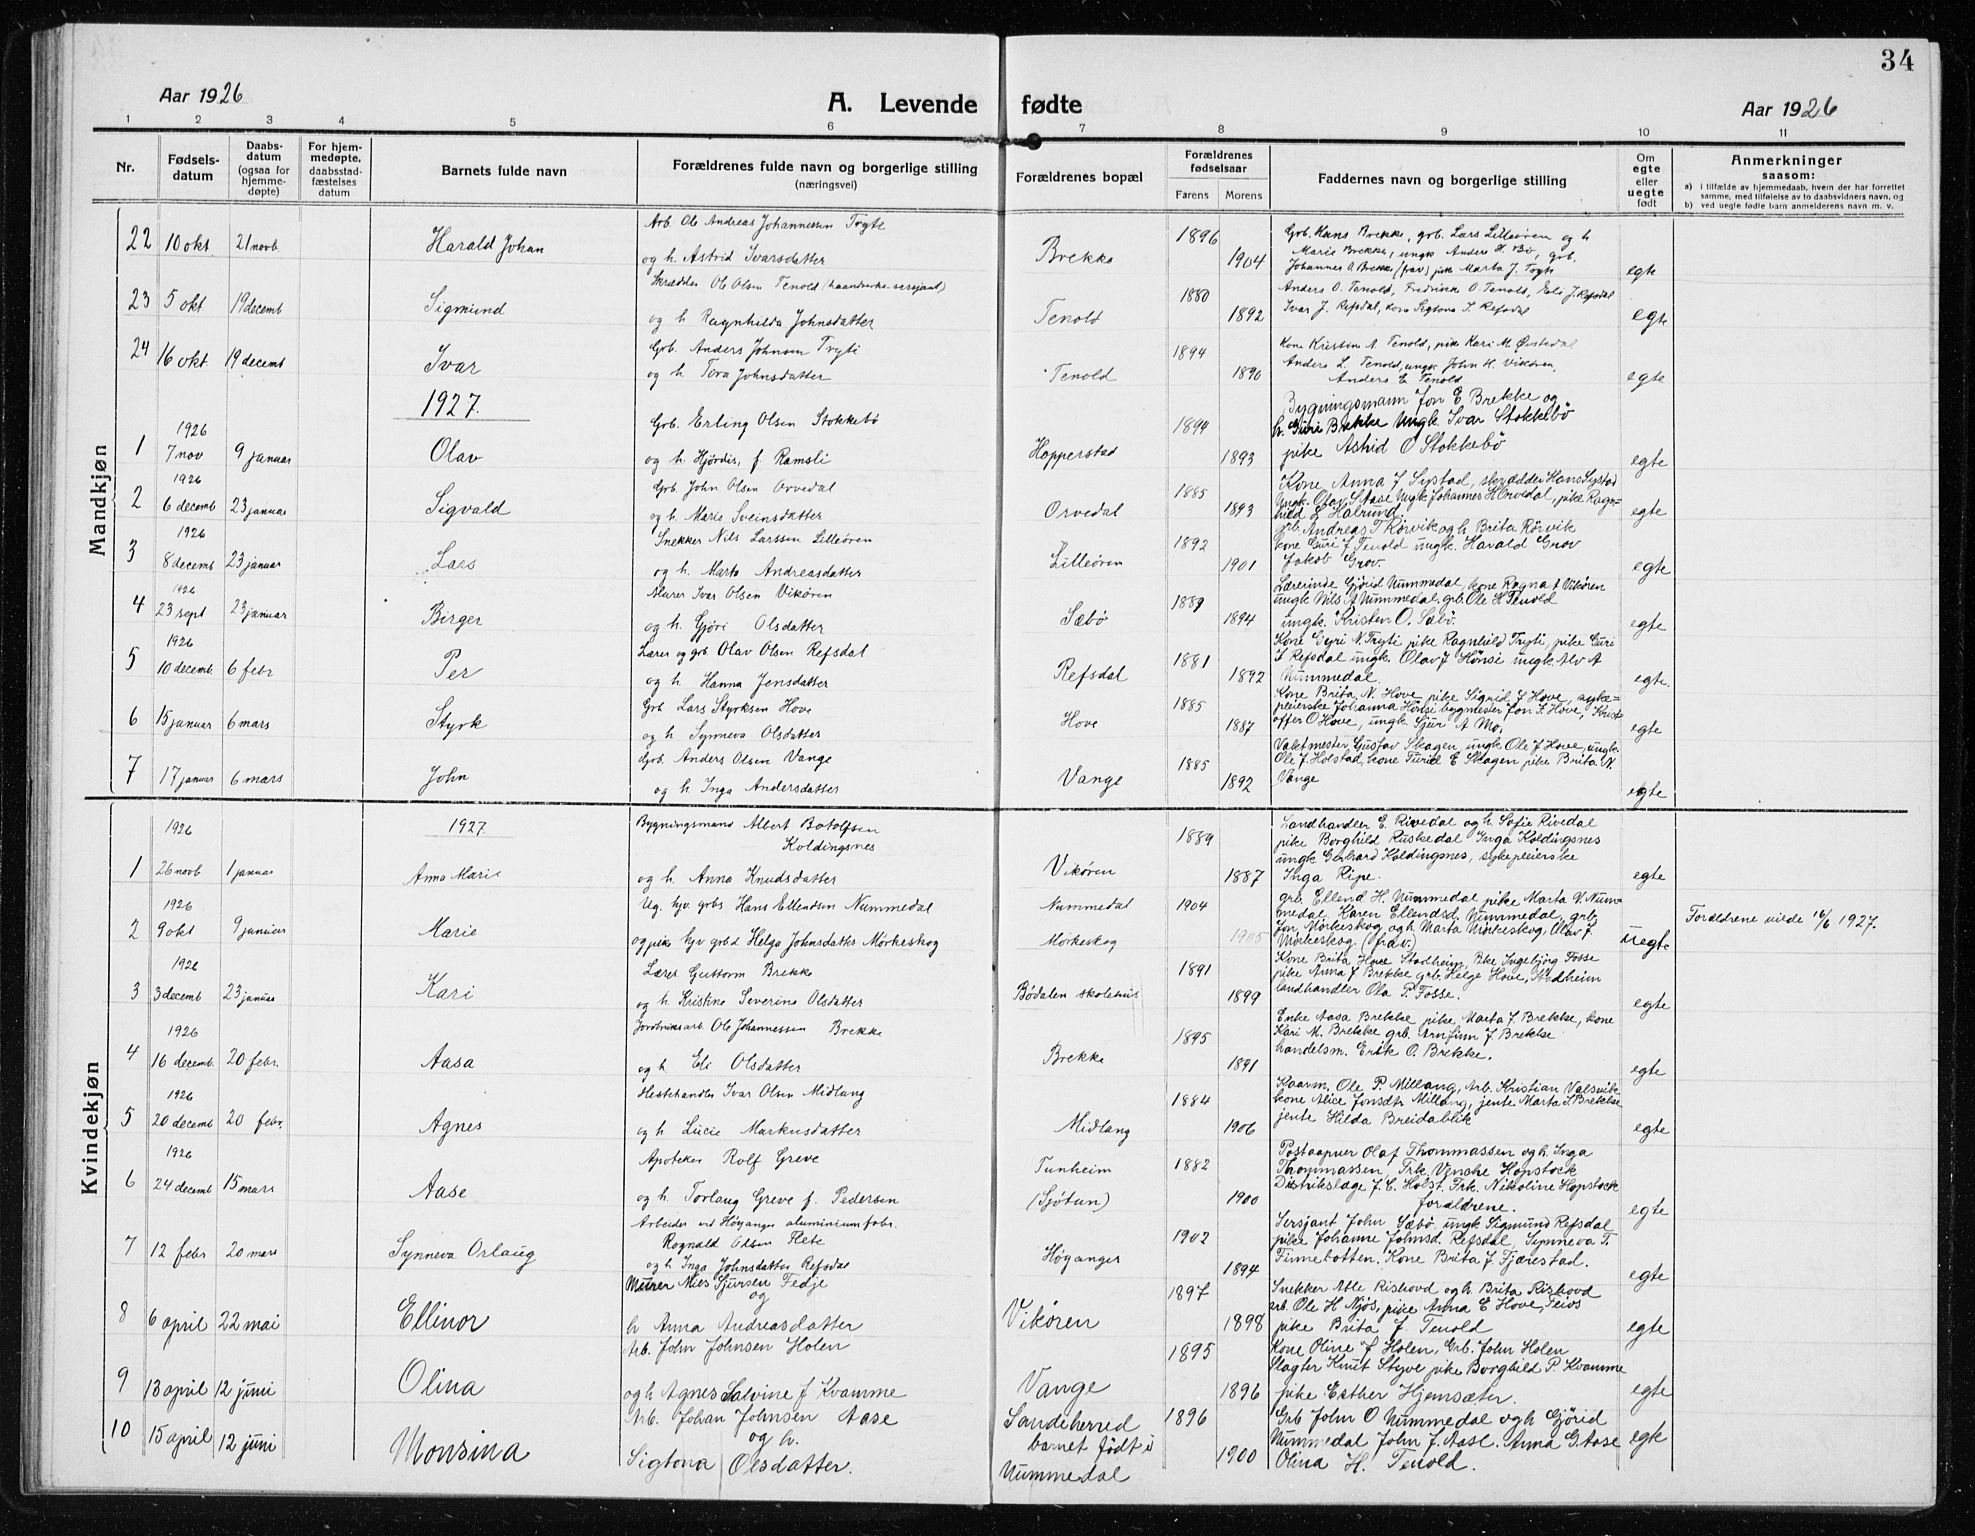 34
Aar 1926
A. Levende fødte
Aar 1926
1 2 3 4 5 6 7 8 9 10 11
Nr.
Fødsels-
datum
Daabs-
datum
(ogsaa for
hjemme-
døpte)
For hjem-
medøpte,
daabsstad-
fæstelses
datum
Barnets fulde navn
Forældrenes fulde navn og borgerlige stilling
(næringsvei)
Forældrenes bopæl
Forældrenes
fødselsaar
Farens Morens
Faddernes navn og borgerlige stilling
Om
egte
eller
uegte
født
Anmerkninger
saasom:
a) i tilfælde av hjemmedaab, hvem der har forrettet
samme, med tilføielse av to daabsvidners navn, og
b) ved uegte fødte barn anmelderens navn m. v.
Mandkjøn
22 10 okt 21 novb Harald Johan
Arb. Ole Andreas Johannessen Tryte
og h. Astrid Ivarsdatter
Brekke 1896 1904
Grb. Hans Brekke, grb. Lars Lilleøren og h
Marie Brekke, ungk Anders H. Bø, grb.
Johannes O. Brekke (frav) pike Marta J. Tryti
egte
23 5 okt 19 decemb Sigmund
Skrædder Ole Olsen Tenold (haandverks-sersjant)
og h. Ragnhilda Johnsdatter
Tenold 1880 1892
Anders O. Tenold, Fredrikke O. Tenold, Eli J. Refsdal
Ivar J. Refsdal, kone Sigtona S. Refsdal
egte
24 16 okt 19 decemb Ivar
Grb. Anders Johnsen Tryti
og h. Tora Johnsdatter
Tenold 1894 1890
Kone Kristen A Tenold, pike Kari M. Øvstedal
Anders L. Tenold, ungk John H. Vikøren,
Anders E Tenold
egte
1927.
1 1926 7 nov 9 januar Olav
Grb. Erling Olsen Stokkebø
og h. Hjørdis, f. Ramsli
Hopperstad 1894 1893
Bygningsmann Jon E Brekke og
h. Guri Brekke Ungk. Ivar Stokkebø
pike Astrid O Stokkebø
egte
2 1926 6 decemb 23 januar Sigvald
Grb. John Olsen Orvedal
og h. Marie Sveinsdatter
Orvedal 1885 1893
Kone Anna J Systad, skrædder Hans Systad
Ungk. Olav S Aase Ungk Johannes H Orvedal, pike Ragn=
hild L Halrund.
egte
3 1926 8 decemb 23 januar Lars
Snekker Nils Larssen Lilleøren
og h. Marta Andreasdatter
Lilleøren 1892 1901
grb. Andreas T Rørvik og h. Brita Rørvik
kone Guri J Tenold ungk. Harald Grov
Jakob Grov.
egte
4 1926 23 sept 23 januar Birger
Murer Ivar Olsen Vikøren
og h. Gjøri Olsdatter
Sæbø 1889 1894
Lærerinde Gjørid Nummedal, kone Ragna A Vikøren
ungk Nils A Nummedal, grb. Ole H Tenold
ungk. Kristen O. Sæbø.
egte
5 1926 10 decemb. 6 febr Per
Lærer og grb. Olav Olsen Refsdal
og h. Hanna Jensdatter
Refsdal 1881 1892
Kone Eyri N. Tryti pike Ragnhild Tryti, pike Guri
J Refsdal ungk. Olav J Hønsi ungk Alv A
Nummedal.
egte.
6 15 januar 6 mars Styrk
Grb Lars Styrksen Hove
og h. Synneva Olsdatter
Hove 1885 1887
Kone Brita N. Hove pike Sigrid J Hove, syke=
pleierske Johanna Hønsi bygmester Jon J. Hove, Krist
offer O Hove, ungk. Sjur A Mo.
egte
7 17 januar 6 mars John
Grb. Anders Olsen Vange
og h. Inga Andersdatter
Vange 1885 1892
Vaktmester Gustav Skagen, ungk Ole J Hove, ungk.
Ole J. Holstad, kone Turid E Skagen pike Brita N.
Vange
egte
Kvindekjøn
1927
1 1926 26 novb 1 januar Anna Marie
Bygningsmand Albert Botolfsen
Koldingsnes
og h. Anna Knudsdatter
Vikøren 1889 1887
Landhandler E. Rivedal og h. Sofie Rivedal
pike Borghild Ruskedal Inga Koldingsnes
ungk Gerhard Koldingsnes, sykepleierske
Inga Ripe.
egte
2 1926 9 okt 9 januar Marie
Ug. hjv. grbs Hans Ellendsen Nummedal
og pike hjv grbd Helga Johnsdatter Mørkeskog
Nummedal
Mørkeskog
1904 1905
grb. Ellend H. Nummedal pike Marta V. Num=
medal, Karen Ellendsd. Nummedal, grb.
Jon Mørkeskog og h Marta Mørkeskog, Olav J.
Mørkeskog. (frav.)
uegte
Forældrene viede 16/6 1927.
3 1926 3 decemb 23 januar Kari
Lærer Guttorm Brekke
og h. Kristine Severine Olsdatter
Bødalen skolehus 1891 1899
Kone Brita Hove Stadheim, Pike Ingebjørg Fosse
pike Anna J Brekke grb. Helge Hove, Stedheim
landhandler Ola P. Fosse.
egte
4 1926 16 decemb. 20 febr. Aasa
Jordbruksarb Ole Johannessen Brekke
og h Eli Olsdatter
Brekke 1895 1891
Enke Aasa Brekke pike Marta J. Brekke, kone
Kari M. Brekke grb. Arnfinn J. Brekke
handelsm. Erik O. Brekke.
egte
5 1926 20 decemb 20 febr. Agnes
Hestehandler Ivar Olsen Midlang
og h. Lucie Markusdatter
Midlang 1884 1906
Kaarm. Ole P. Millang, Arb. Kristian Valsvik
kone Alice Jonsdtr Millang, jente Marta J Brekke
jente Hilda Breidablik
egte
6 1926 24 decemb 15 mars Aase
Apoteker Rolf Greve
og h. Torlaug Greve f. Pedersen
Tunheim
(Sjøtun)
1882 1900
Postaapner Olaf Thommassen og h. Inga
Thommassen, Frk. Venche Hopstock
Distrikslæge J. C. Holst. Frk. Nikoline Hopstock
forældrene.
egte
7 12 febr 20 mars Synneva Orlaug
Arbeider ved Høyanger aluminiumfabr.
Rognald Olsen Flete
og h. Inga Johnsdatter Refsdal
Høyanger 1902 1894
Sersjant John Sæbø, ungk Sigmund Refsdal
pike Johanne Johnsd. Refsdal, Synneva T.
Finnebotten. Kone Brita J. Fjærestad.
egte
8 6 april 22 mai Ellinor
Murer Nils Sjursen Fedje
og
h Anna Andreasdatter
Vikøren 1897 1898
Snekker Atle Rishovd og h Brita Rishovd
arb. Ole H Njøs, pike Anna E Hove, Feios
pike Brita J. Tenold
egte
9 13 april 12 juni Olina
Arb. John Johnsen Holen
og h Agnes Salvine f Kvamme
Vange 1895 1896
Kone Oline J Holen, Grb. John Holen
Slagter Knut Styve pike Borghild P. Kvamme
pike Esther Hjemsæter.
egte
10 15 april 12 juni Monsina
Arb. Johan Johnsen Aase
og h.
Sigtona Olsdatter.
Sandeherred
barnet født i
Nummedal
1896 1900
Grb John O Nummedal og h Gjørid
Nummedal John J. Aase. Anna G. Aase
Olina H. Tenold.
egte